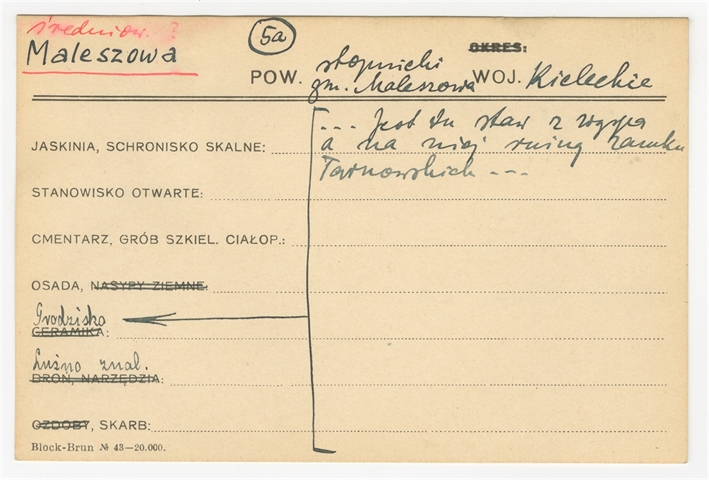 średniow. ?
Maleszowa
5a
OKRES:
POW. stopnicki WOJ. Kieleckie
gm. Maleszowa
JASKINIA, SCHRONISKO SKALNE: ... Jest tu staw z wyspą
a na niej ruiny zamku
Tarnowskich ...
STANOWISKO OTWARTE:
CMENTARZ, GRÓB SZKIEL. CIAŁOP.:
OSADA, NASYPY ZIEMNE:
Grodzisko
CERAMIKA:
Luźno znal.
BROŃ, NARZĘDZIA:
OZDOBY, SKARB:
Block-Brun № 43—20.000.